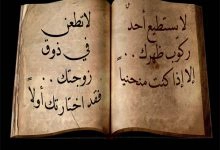 لا يستطيع أحدٌ
ركوب ظهرك..
إلا إذا كنت منحنياً
لا تطعن
في ذوق
زوجتك..
فقد اختارتك أولاً